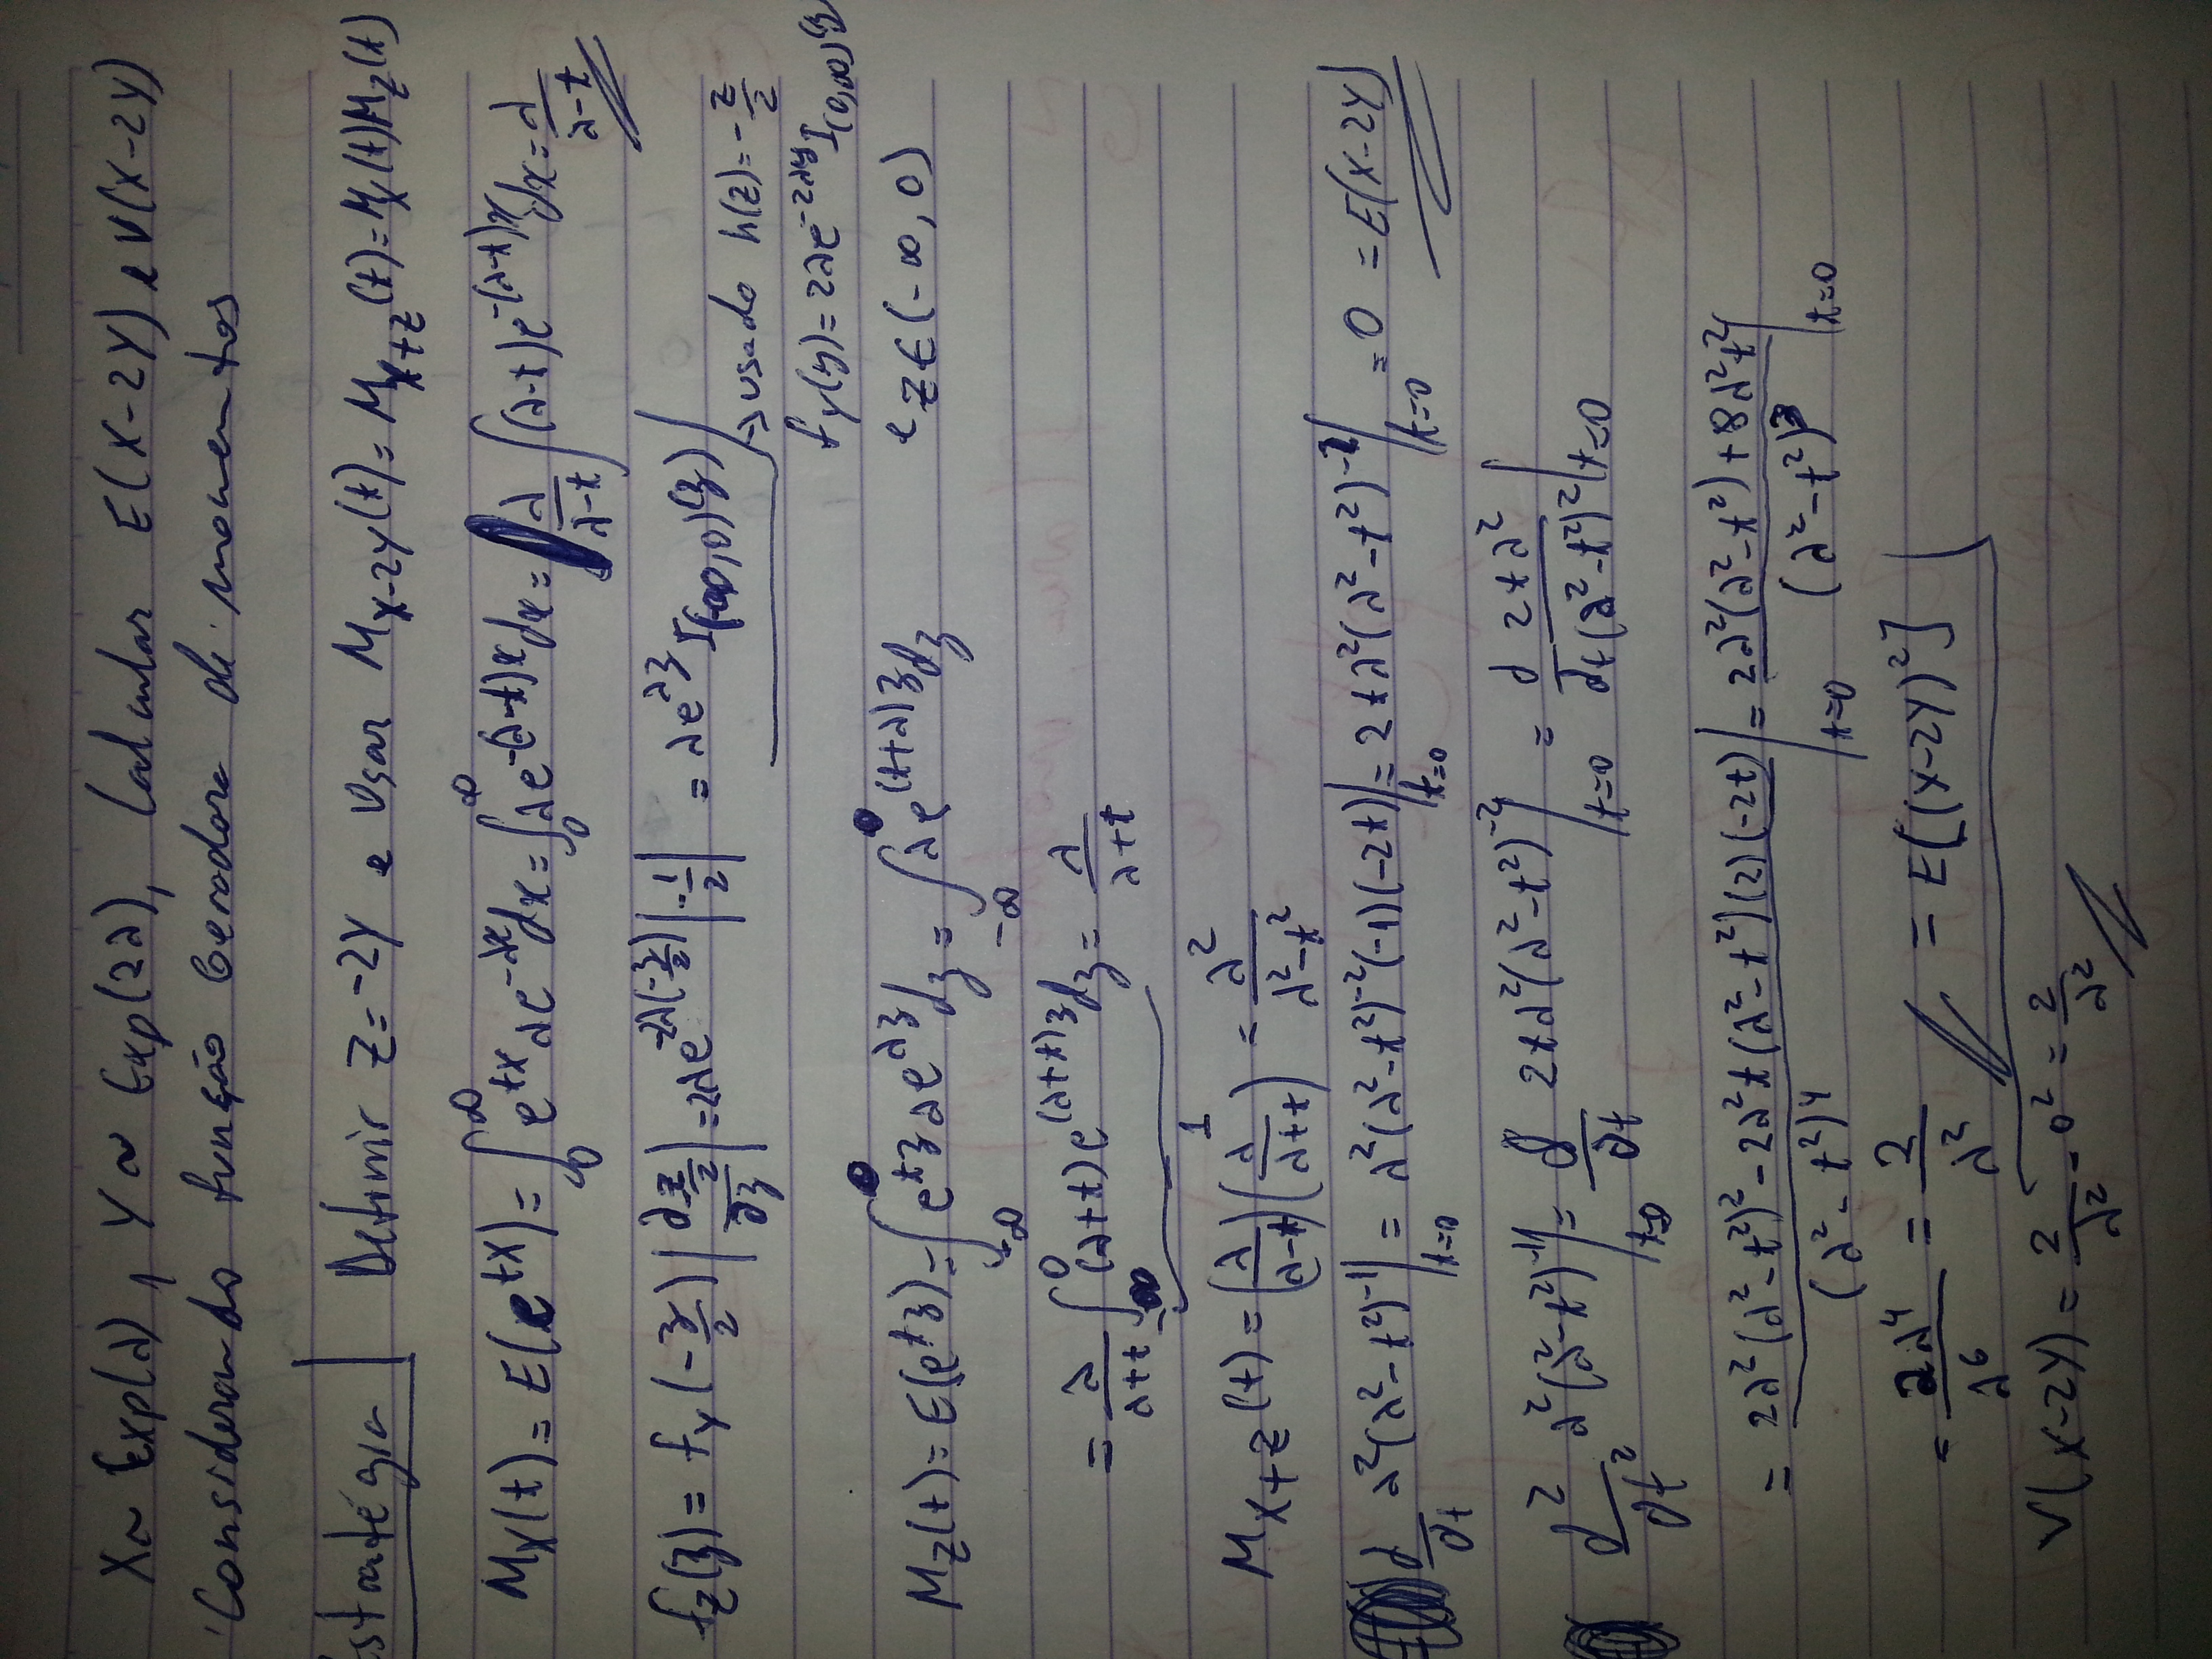 X ~ Exp(λ), Y ~ Exp(2λ), Calcular E(X-2Y) e V(X-2Y)
Considerando função Geradora de momentos
stratégia | Definir Z=-2Y e Usar M_{X-2Y}(t) = M_{X+Z}(t) = M_X(t)M_Z(t)
M_X(t) = E(e^{tX}) = ∫_0^∞ e^{tx} λe^{-λx} dx = ∫_0^∞ λe^{-(λ-t)x} dx = λ/(λ-t) ∫(λ-t)e^{-(λ-t)x} dx = λ/(λ-t)
f_Z(z) = f_Y(-z/2) |∂ z/2 / ∂z| = 2λe^{-2λ(-z/2)} |-1/2| = λe^{λz} I_{(-∞,0)}(z)
→ usado h(z) = -z/2
f_Y(y) = 2λe^{-2λy} I_{(0,∞)}(y)
e z ∈ (-∞, 0)
M_Z(t) = E(e^{tz}) = ∫_{-∞}^0 e^{tz} λe^{λz} dz = ∫_{-∞}^0 λe^{(t+λ)z} dz
= λ/(λ+t) ∫_{-∞}^0 (λ+t)e^{(λ+t)z} dz = λ/(λ+t)
1
M_{X+Z}(t) = (λ/(λ-t))(λ/(λ+t)) = λ²/(λ²-t²)
d/dt λ²(λ²-t²)^{-1} |_{t=0} = λ²(λ²-t²)^{-2}(-1)(-2t)|_{t=0} = 2tλ²(λ²-t²)^{-2}|_{t=0} = 0 = E(X-2Y)
d²/dt² λ²(λ²-t²)^{-1}|_{t=0} = d/dt 2tλ²(λ²-t²)^{-2}|_{t=0} = d/dt 2tλ²/(λ²-t²)² |_{t=0}
= 2λ²(λ²-t²)²-2λ²t(λ²-t²)(2)(-2t)/(λ²-t²)⁴ |_{t=0} = 2λ²(λ²-t²)+8λ²t²/(λ²-t²)³ |_{t=0}
= 2λ⁴/λ⁶ = 2/λ² = E[(X-2Y)²]
V(X-2Y) = 2/λ² - 0² = 2/λ²